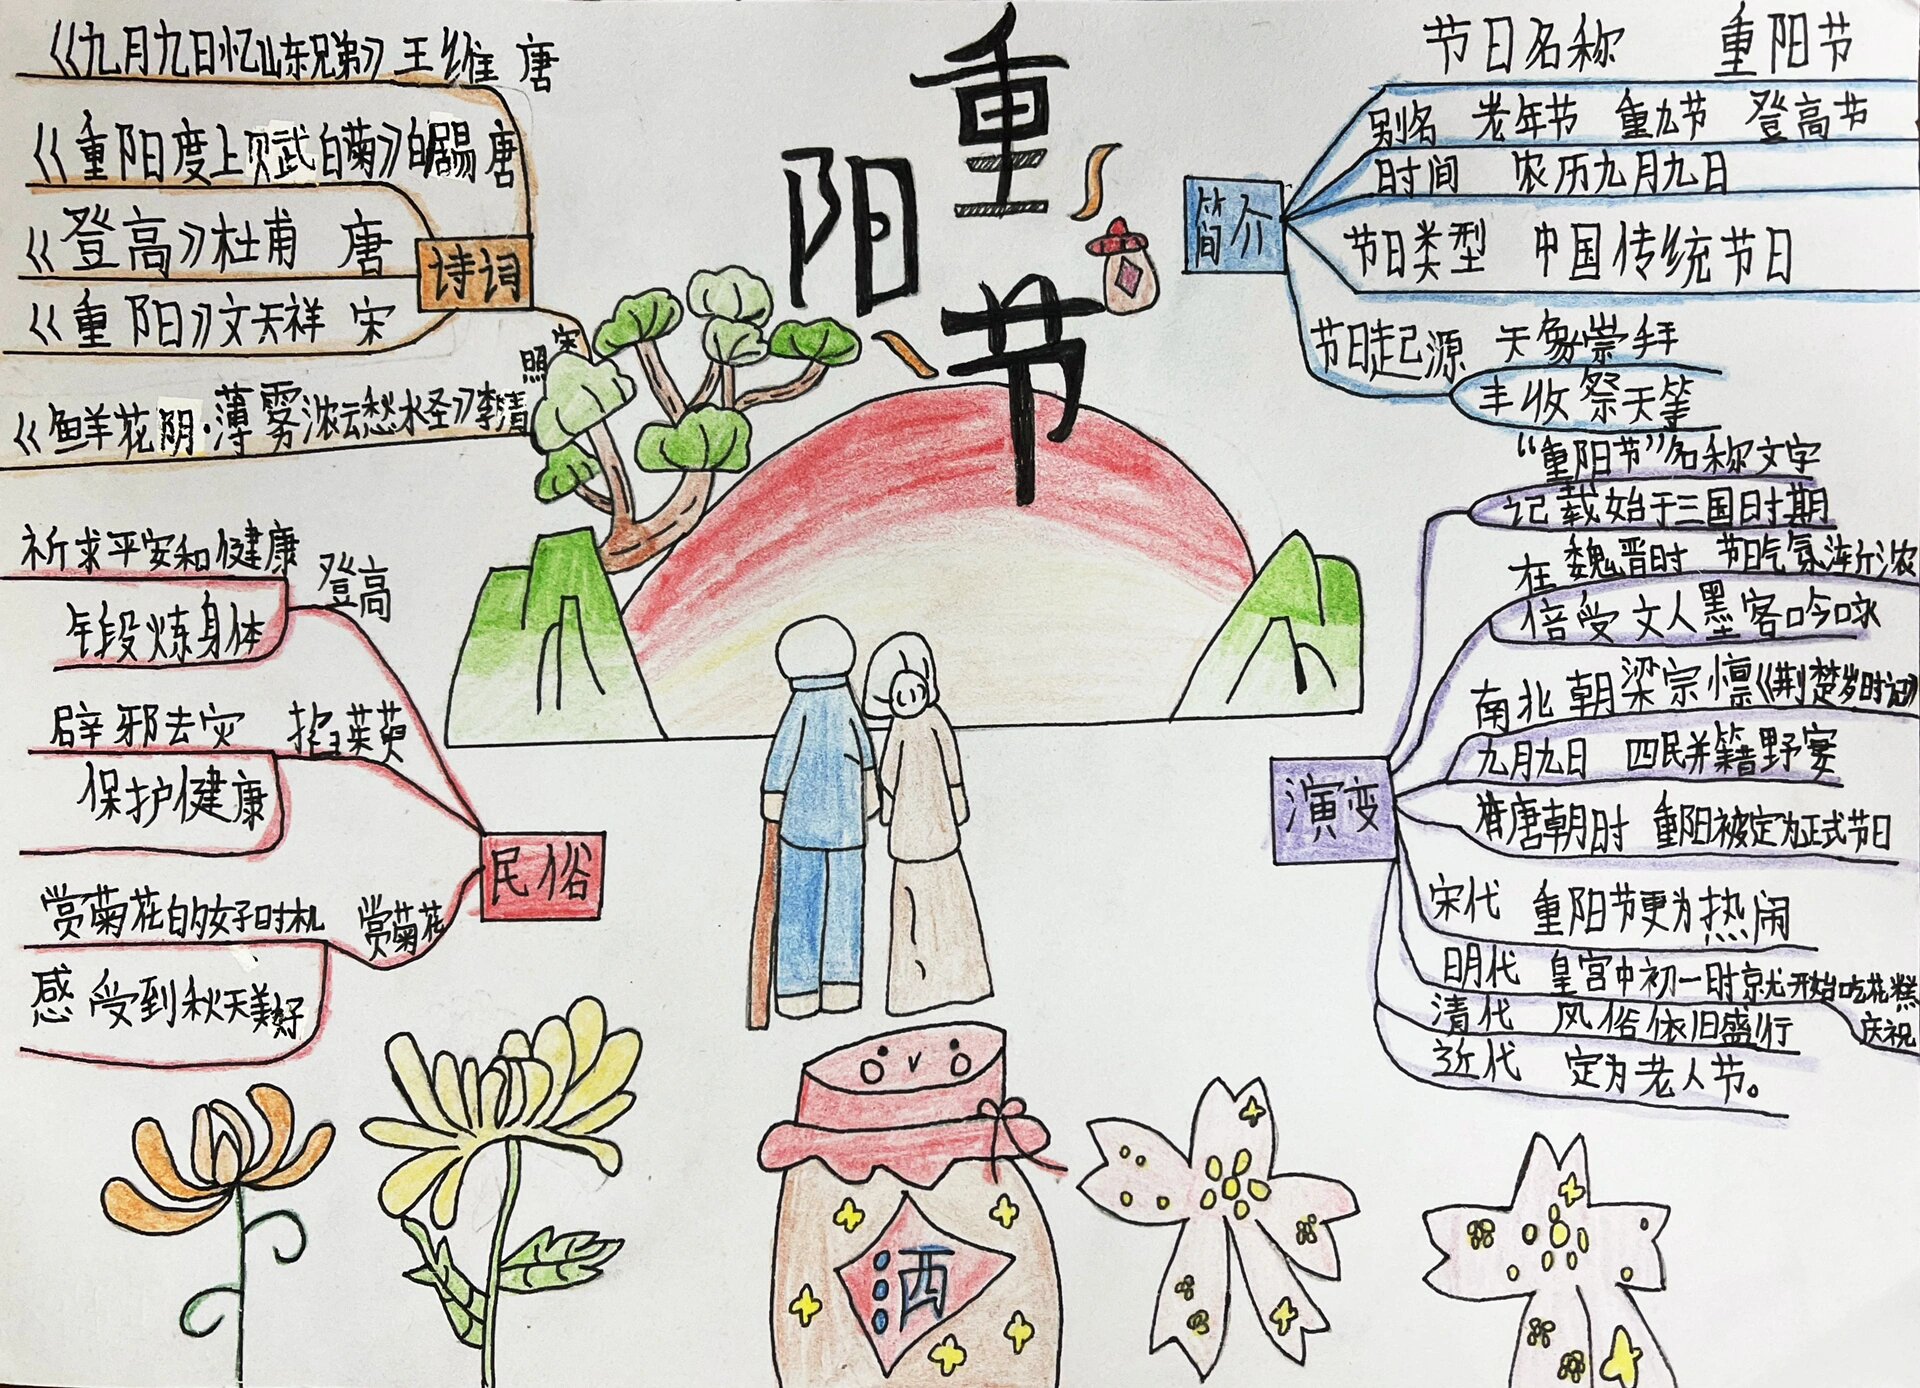 重阳节
《九月九日忆山东兄弟》王维 唐
《重阳度上赋武白菊》白居易 唐
《登高》杜甫 唐
诗词
《重阳》文天祥 宋
照 宋
《鲜花阴·薄雾浓云愁水圣》李清
简介
节日名称 重阳节
别名 老年节 重九节 登高节
时间 农历九月九日
节日类型 中国传统节日
节日起源 天象崇拜
丰收祭天等
祈求平安和健康
登高
年段炼身体
辟邪去灾
保护健康
民俗
赏菊花的好时机 赏菊花
感受到秋天美好
演变
“重阳节”名称文字
记载始于三国时期
在魏晋时 节日气氛渐浓
倍受文人墨客吟咏
南北朝梁宗懔《荆楚岁时记》
九月九日 四民并籍野宴
唐朝时 重阳被定为正式节日
宋代 重阳节更为热闹
明代 皇宫中初一时就开始吃花糕
庆祝
清代 风俗依旧盛行
近代 定为老人节。
酒